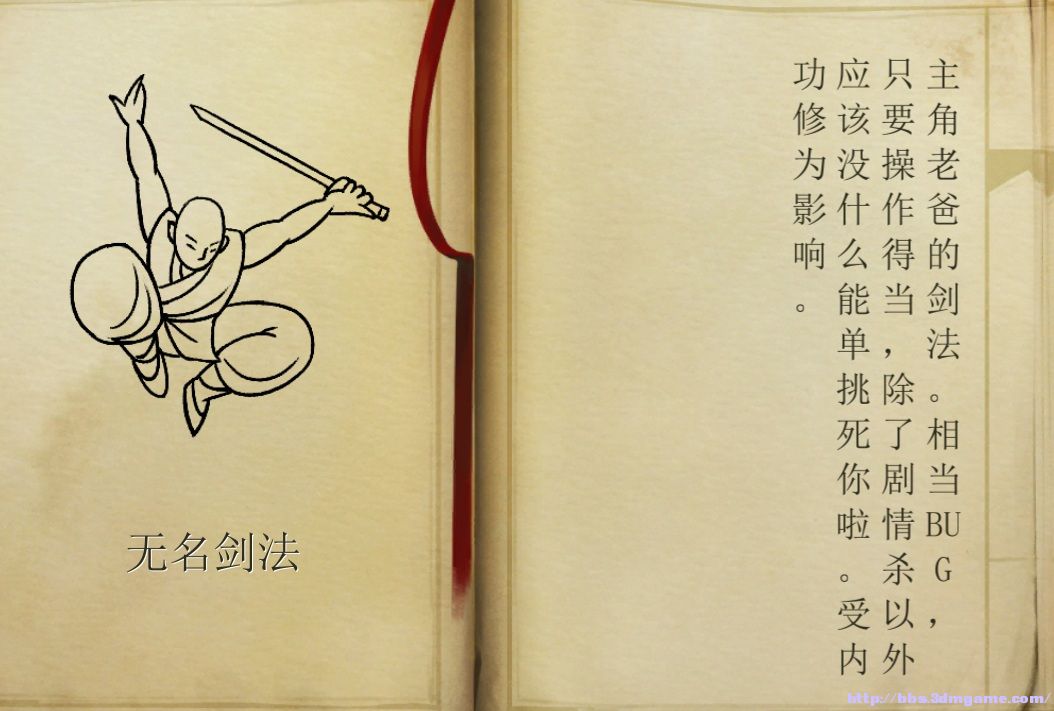 无名剑法
主角老爸的剑法。相当BUG，
只要操作得当，除了剧情杀以外
应该没什么能单挑死你啦。受内
功修为影响。
http://bbs.3dmgame.com/